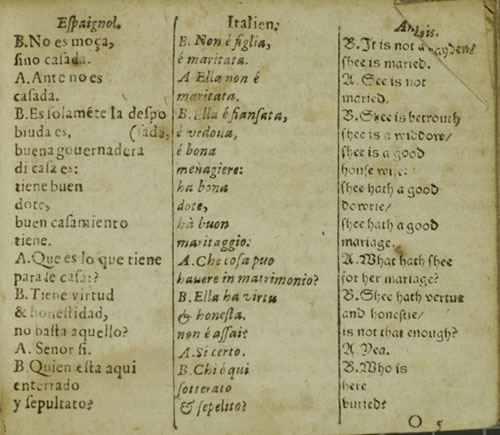 Espaignol.
B.No es moça,
sino casada.
A.Ante no es
casada.
B.Es solamẽte la despo
biuda es, (sada,
buena gouernadera
di casa es:
tiene buen
dote,
buen casamiento
tiene.
A.Que es lo que tiene
para se casar?
B.Tiene virtud
& honestidad,
no basta aquello?
A. Senor si.
B.Quien esta aqui
enterrado
y sepultato?
Italien.
B. Non é figlia,
é maritata.
A Ella non é
maritata.
B.Ella é fiansata,
é vedoua,
é bona
menagiere:
ha bona
dote,
hà buon
maritaggio:
A.Che cosa puo
hauere in matrimonio?
B.Ella ha virtu
& honesta.
non é assai?
A.Si certo.
B.Chi é qui
sotterato
& sepelito?
B.It is not a
shee is maried.
A. See is not
maried.
B.Shee is betrouth
shee is a widdow/
shee is a good
house wife:
shee hath a good
dowrie/
shee hath a good
mariage.
A.What hath shee
for her mariage?
B.Shee hath vertue
and honestie/
is not that enough?
A.Yea.
B.Who is
here
buried?
O 5